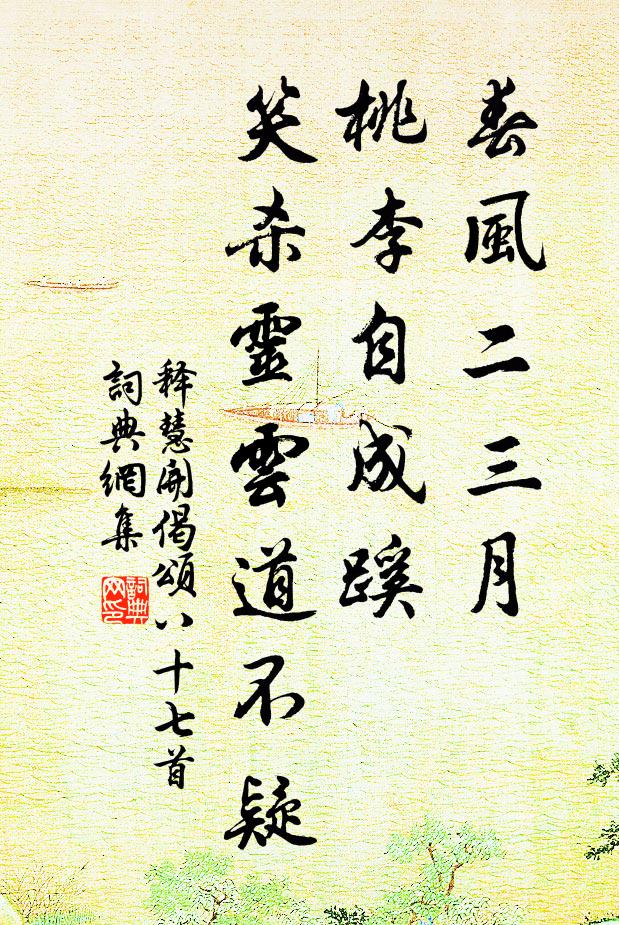 春風二三月
桃李自成蹊
笑杀靈雲道不疑
释慧開偈頌八十七首
詞典網集
詞典
网印